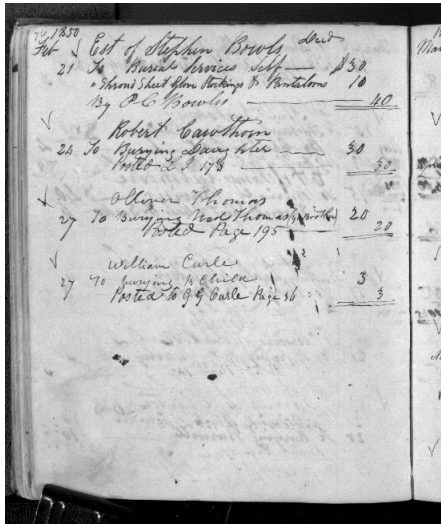 1850
Feb Est of Stephen Bowls Decd
21 To Burial Services Self $30
" Shroud Sheet Glove Stockings & Pantaloons 10
By P. C Bowles 40
Robert Cawthorn
24 To Burying Daughter 30
Posted L J 178 30
Olliver Thomas
27 To Burying Thomas Brother 20
Posted Page 195 20
William Curle
27 To Burying B Child 3
Posted to G G Curle Page 36 3
Mar